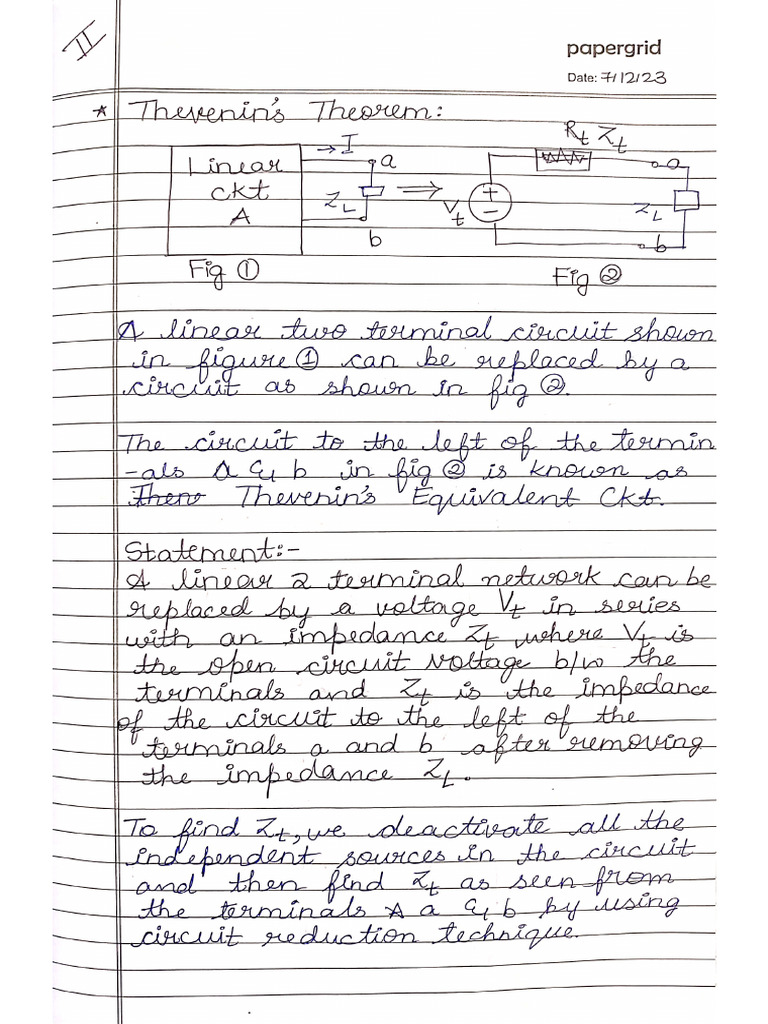 II
papergrid
Date: 7/12/23
* Thevenin's Theorem:
Linear
ckt
A
→ I
a
ZL
b
⇒
Vt
+
−
Rt Zt
a
ZL
b
Fig ①
Fig ②
A linear two terminal circuit shown
in figure ① can be replaced by a
circuit as shown in fig ②.
The circuit to the left of the termin
-als a & b in fig ② is known as
Theno Thevenin's Equivalent Ckt.
Statement:-
A linear 2 terminal network can be
replaced by a voltage Vt in series
with an impedance Zt where Vt is
the open circuit voltage b/w the
terminals and Zt is the impedance
of the circuit to the left of the
terminals a and b after removing
the impedance ZL.
To find Zt, we deactivate all the
independent sources in the circuit
and then find Zt as seen from
the terminals A a & b by using
circuit reduction technique.